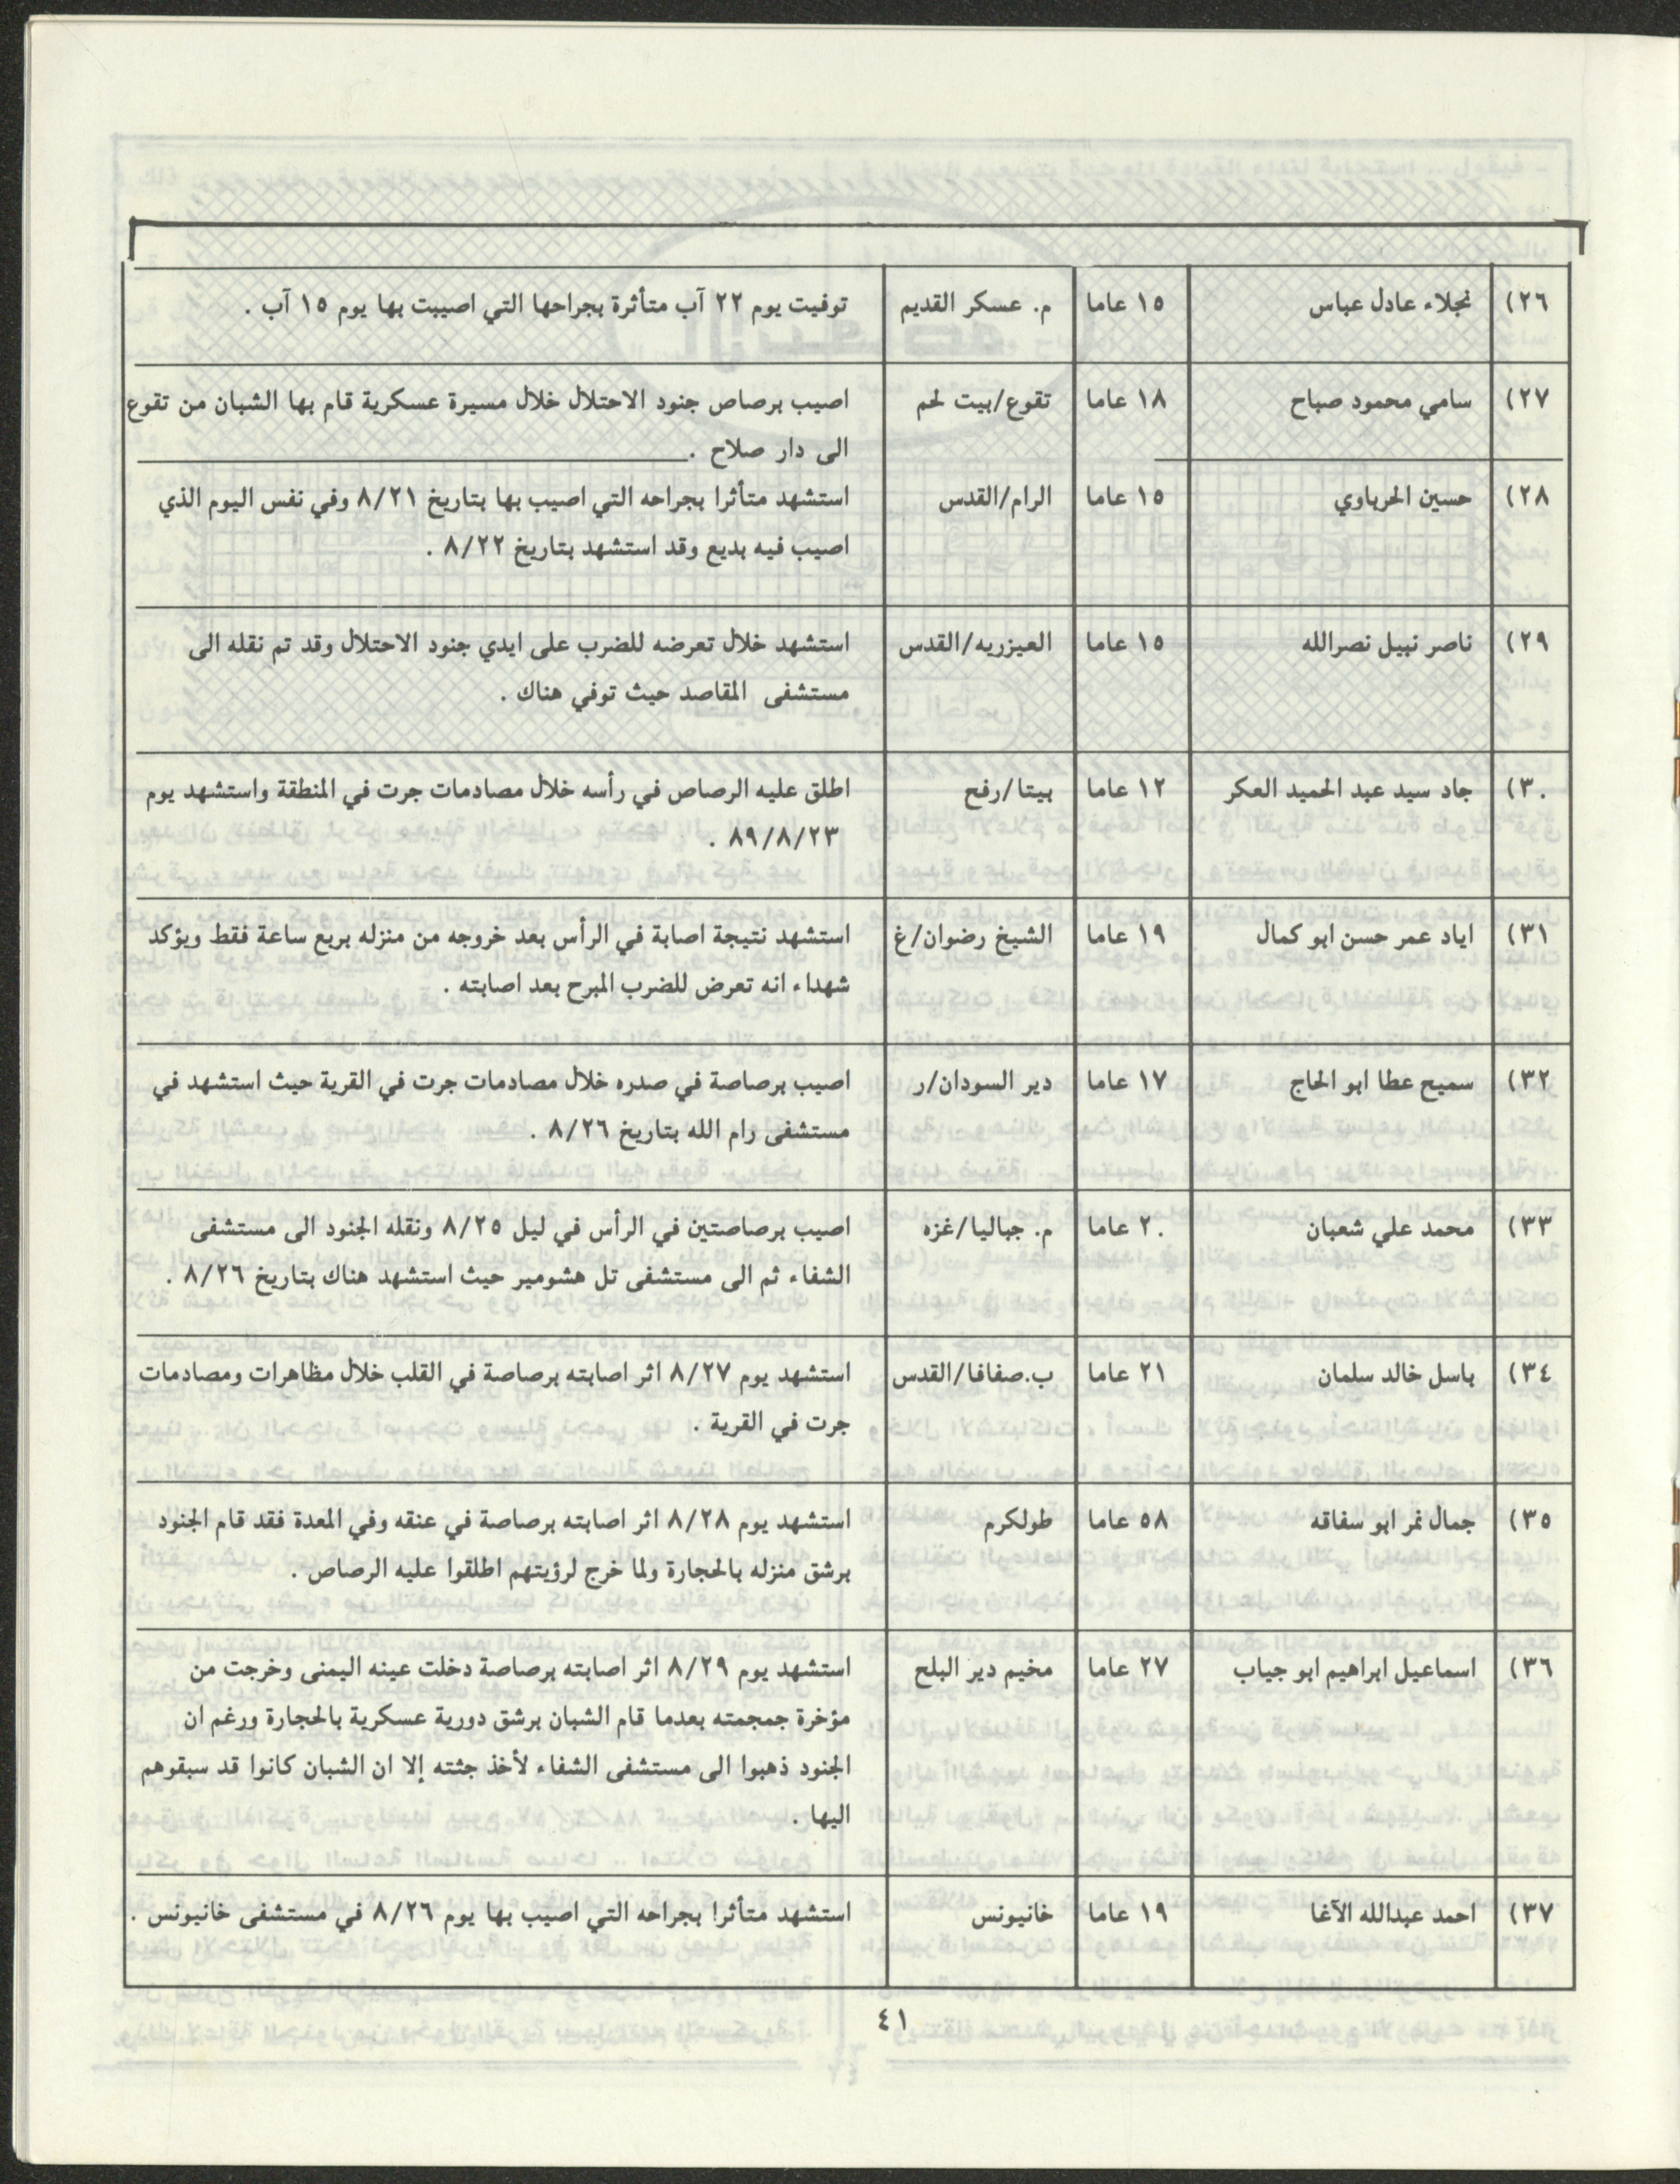 ٢٦) نجلاء عادل عباس ١٥ عاما م. عسكر القديم توفيت يوم ٢٢ آب متأثرة بجراحها التي اصيبت بها يوم ١٥ آب .
٢٧) سامي محمود صباح ١٨ عاما تقوع/بيت لحم اصيب برصاص جنود الاحتلال خلال مسيرة عسكرية قام بها الشبان من تقوع
الى دار صلاح .
٢٨) حسين الحرباوي ١٥ عاما الرام/القدس استشهد متأثرا بجراحه التي اصيب بها بتاريخ ٨/٢١ وفي نفس اليوم الذي
اصيب فيه بديع وقد استشهد بتاريخ ٨/٢٢ .
٢٩) ناصر نبيل نصرالله ١٥ عاما العيزريه/القدس استشهد خلال تعرضه للضرب على ايدي جنود الاحتلال وقد تم نقله الى
مستشفى المقاصد حيث توفي هناك .
٣٠) جاد سيد عبد الحميد العكر ١٢ عاما بيتا/رفح اطلق عليه الرصاص في رأسه خلال مصادمات جرت في المنطقة واستشهد يوم
٨٩/٨/٢٣ .
٣١) اياد عمر حسن ابو كمال ١٩ عاما الشيخ رضوان/غ استشهد نتيجة اصابة في الرأس بعد خروجه من منزله بربع ساعة فقط ويؤكد
شهداء انه تعرض للضرب المبرح بعد اصابته .
٣٢) سميح عطا ابو الحاج ١٧ عاما دير السودان/ر اصيب برصاصة في صدره خلال مصادمات جرت في القرية حيث استشهد في
مستشفى رام الله بتاريخ ٨/٢٦ .
٣٣) محمد علي شعبان ٢٠ عاما م. جباليا/غزه اصيب برصاصتين في الرأس في ليل ٨/٢٥ ونقله الجنود الى مستشفى
الشفاء ثم الى مستشفى تل هشومير حيث استشهد هناك بتاريخ ٨/٢٦ .
٣٤) باسل خالد سلمان ٢١ عاما ب.صفافا/القدس استشهد يوم ٨/٢٧ اثر اصابته برصاصة في القلب خلال مظاهرات ومصادمات
جرت في القرية .
٣٥) جمال نمر ابو سفاقه ٥٨ عاما طولكرم استشهد يوم ٨/٢٨ اثر اصابته برصاصة في عنقه وفي المعدة فقد قام الجنود
برشق منزله بالحجارة ولما خرج لرؤيتهم اطلقوا عليه الرصاص .
٣٦) اسماعيل ابراهيم ابو جياب ٢٧ عاما مخيم دير البلح استشهد يوم ٨/٢٩ اثر اصابته برصاصة دخلت عينه اليمنى وخرجت من
مؤخرة جمجمته بعدما قام الشبان برشق دورية عسكرية بالحجارة ورغم ان
الجنود ذهبوا الى مستشفى الشفاء لأخذ جثته إلا ان الشبان كانوا قد سبقوهم
اليها .
٣٧) احمد عبدالله الآغا ١٩ عاما خانيونس استشهد متأثرا بجراحه التي اصيب بها يوم ٨/٢٦ في مستشفى خانيونس .
٤١